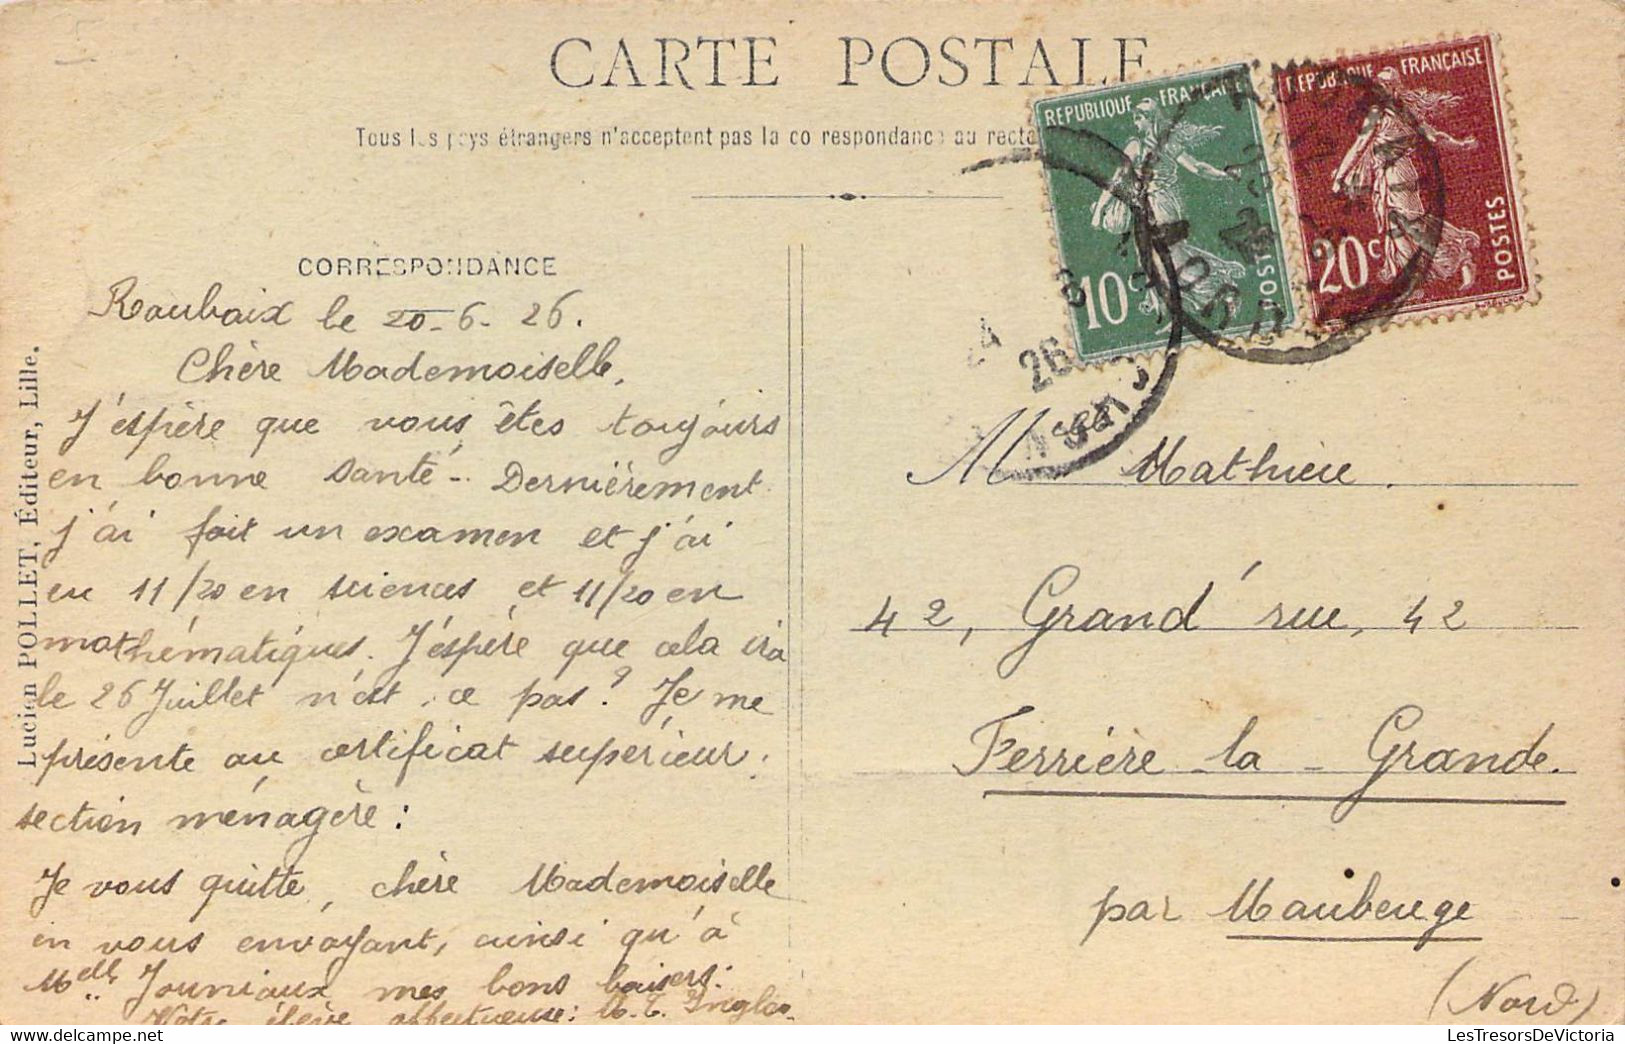 CARTE POSTALE
Tous les pays étrangers n'acceptent pas la correspondance au recto
REPUBLIQUE FRANÇAISE
10c
POSTES
REPUBLIQUE FRANÇAISE
20c
POSTES
26
CORRESPONDANCE
Roubaix le 20-6-26.
Chère Mademoiselle,
J'éspère que vous êtes toujours
en bonne santé -. Dernièrement
j'ai fait un examen et j'ai
eu 11/20 en sciences et 11/20 en
mathématiques. J'éspère que cela ira
le 26 Juillet n'est, ce pas? Je me
présente au certificat supérieur;
section ménagère:
Je vous quitte, chère Mademoiselle
en vous envoyant, ainsi qu'à
Melle Jouniaux mes bons baisers.
Votre élève affectueuse:
Melle Mathieu.
42, Grand' rue, 42
Ferrière-la-Grande.
par Maubeuge
(Nord)
Lucien POLLET, Éditeur, Lille.
LesTresorsDeVictoria